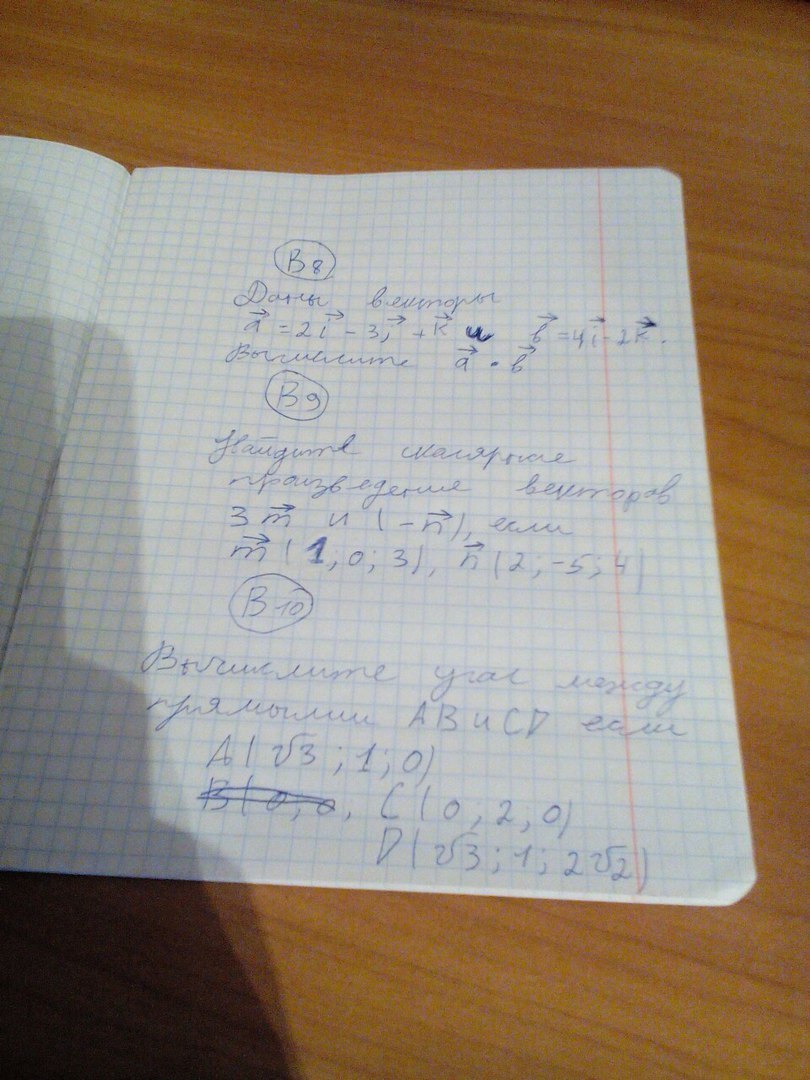 В8
Даны векторы
a⃗ = 2i⃗ - 3j⃗ + k⃗ и b⃗ = 4i⃗ - 2k⃗.
Вычислите a⃗ · b⃗
В9
Найдите скалярное
произведение векторов
3m⃗ и (-n⃗), если
m⃗ (1; 0; 3), n⃗ (2; -5; 4)
В10
Вычислите угол между
прямыми AB и CD если
A (√3; 1; 0)
B (0; 0, C (0; 2, 0)
D (√3; 1; 2√2)